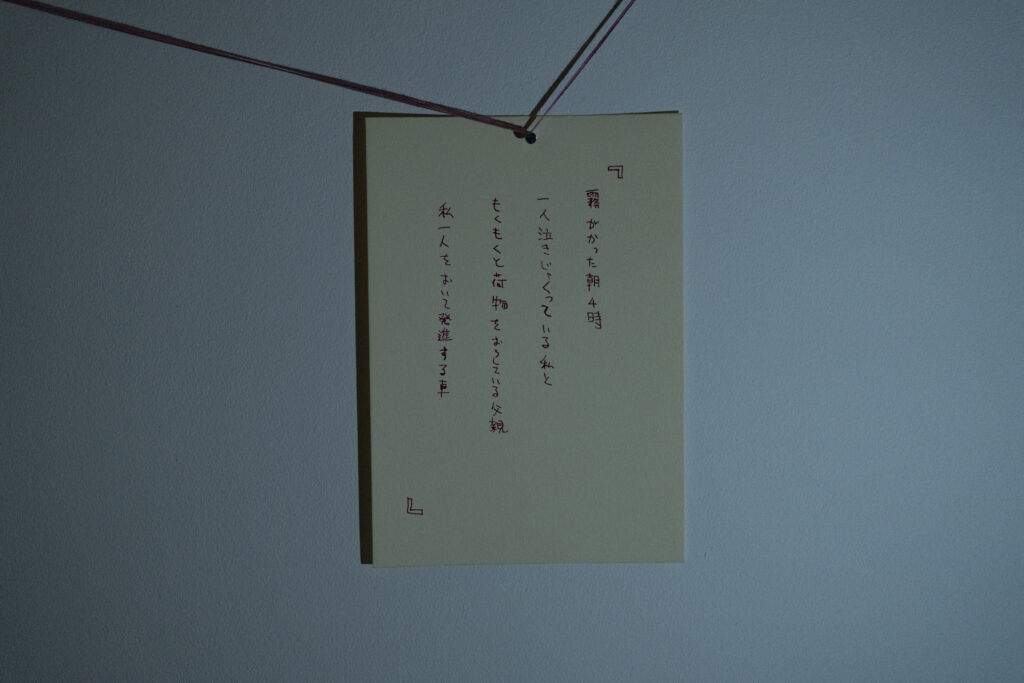 『
霧がかった朝4時
一人泣きじゃくっている私と
もくもくと荷物をおろしている父親
私一人をおいて発進する車
』